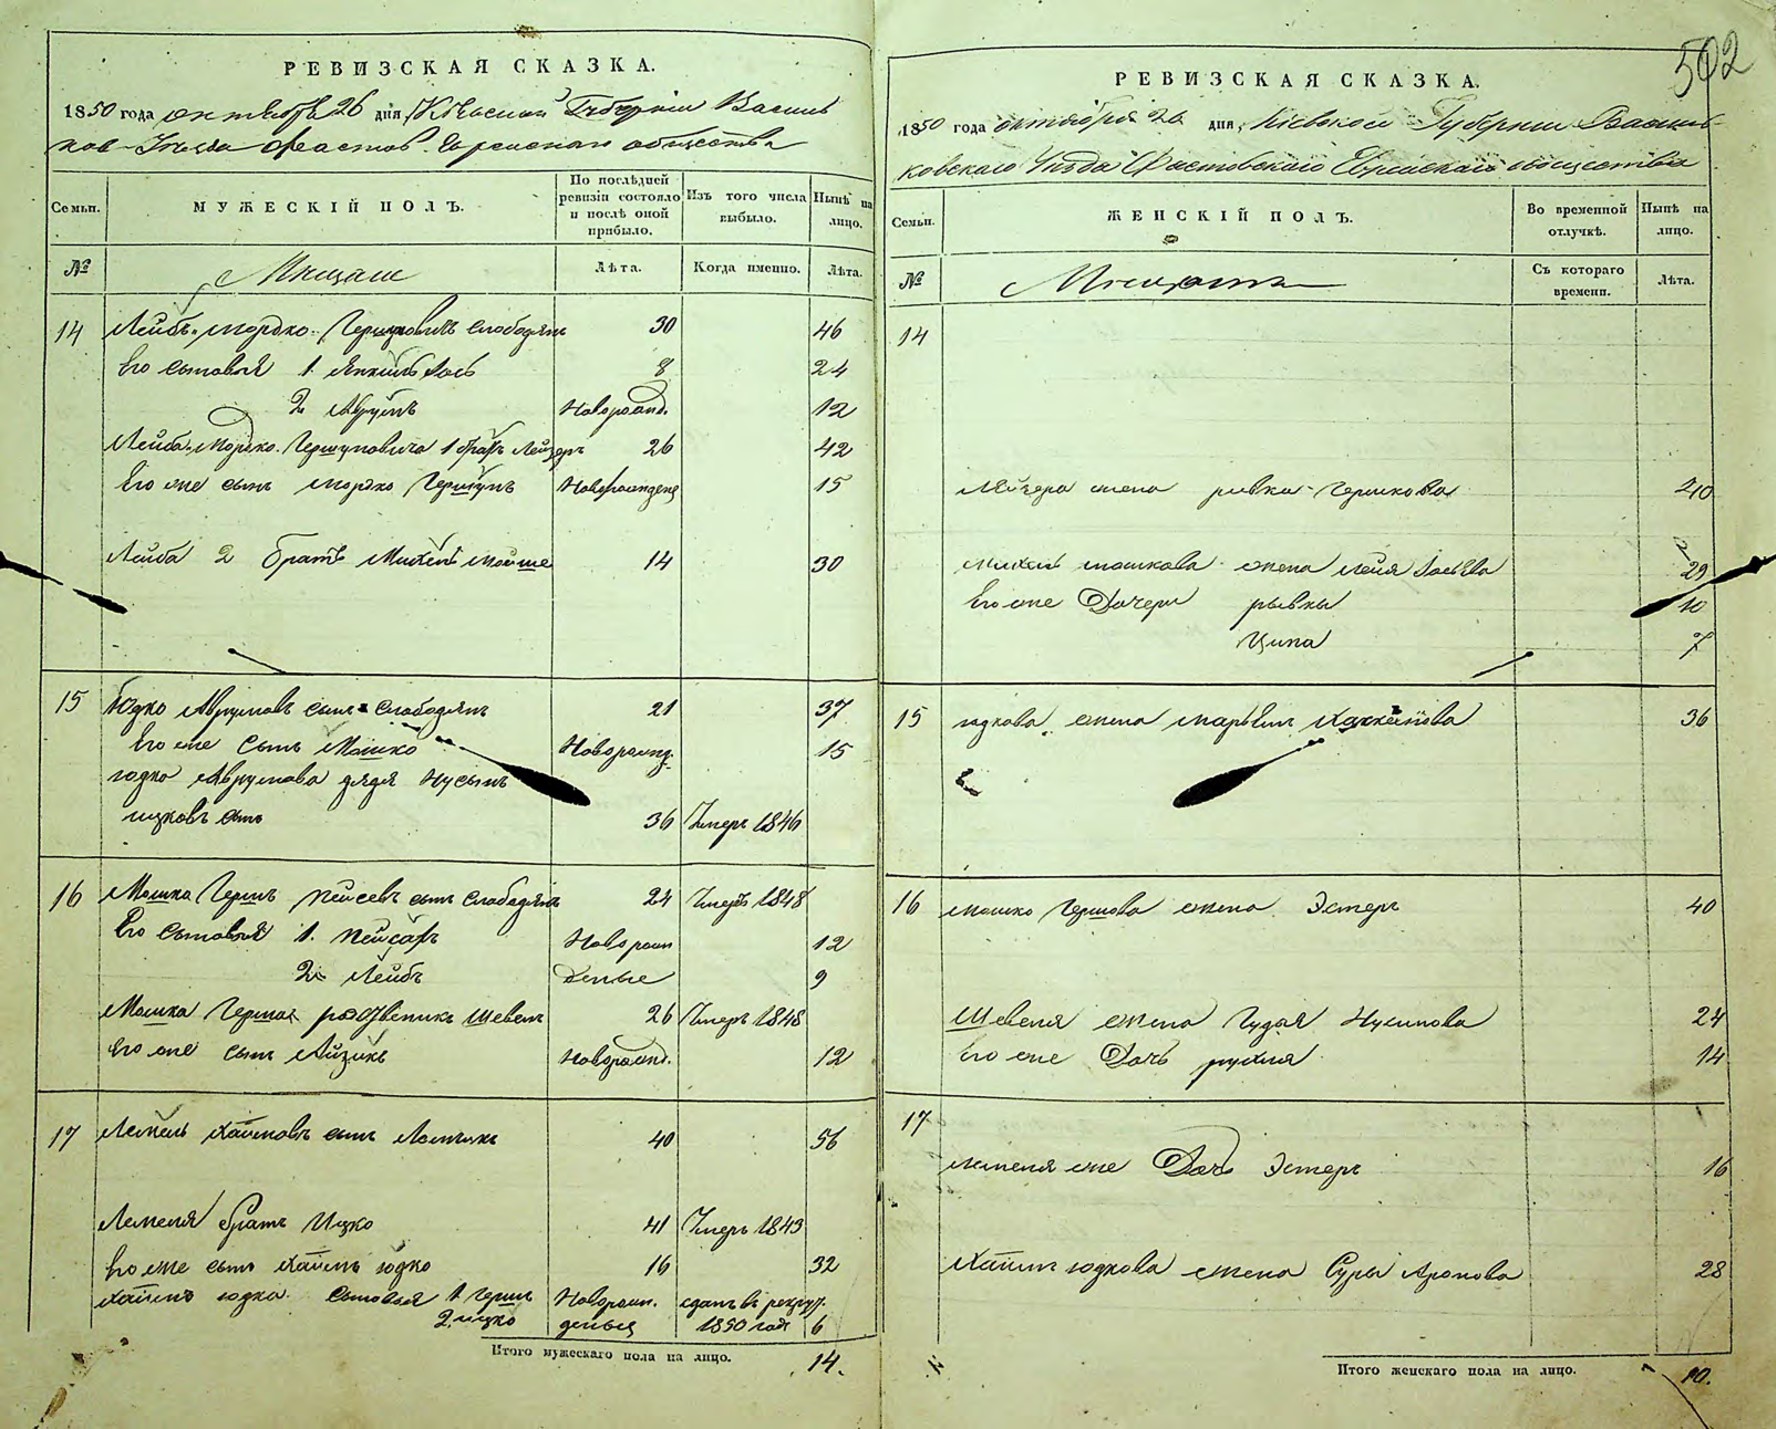 502
РЕВИЗСКАЯ СКАЗКА.
1850 года октября 26 дня, Кіевской Губерніи Василь
ков. Уезда Фастов. Еврейскаго общества
Семьи.
МУЖЕСКІЙ ПОЛЪ.
По послѣдней ревизіи состояло и послѣ оной прибыло.
Изъ того числа выбыло.
Нынѣ на лицо.
№
Мещане
Лѣта.
Когда именно.
Лѣта.
14 Лейбъ-Мордко Гершковичъ Слободянъ 30 46
Его сыновья 1. Янкель Іось 8 24
2 Аврумъ Новорожд. 12
Лейба-Мордко Гершковича 1 братъ Лейзеръ 26 42
Его же сынъ Мордко Гершунъ Новорожденъ 15
Лейба 2 братъ Михель Мойше 14 30
15 Юдко Аврумовъ сынъ Слободянъ 21 37
Его же сынъ Мошко Новорожд. 15
Юдко Аврумова дядя Нусынъ
ицковъ сынъ 36 Умеръ 1846
16 Мошка Гершъ Пейсевъ сынъ Слабодянъ 24 Умеръ 1848
Его сыновья 1. ПейсахъНоворож 12
2 Лейбъ денные 9
Мошка Герша родственикъ Шевель 26 Умеръ 1848
Его же сынъ Айзикъ Новорожд. 12
17 Лемель Хаимовъ сынъ 40 56
Лемеля братъ Ицко 41 Умеръ 1843
Его же сынъ Хаимъ Юдко 16 32
Хаимъ Юдка Сыновья 1 Гершъ Новорож. сданъ въ рекрут.
2. ицко денныя 1850 годъ 6
Итого мужескаго пола на лицо. 14.
РЕВИЗСКАЯ СКАЗКА.
1850 года октября 26 дня, Кіевской Губерніи Василь-
ковскаго Уѣзда Фастовскаго Еврейскаго общества
Семьи.
ЖЕНСКІЙ ПОЛЪ.
Во временной отлучкѣ.
Нынѣ на лицо.
№
Мещане
Съ котораго времени.
Лѣта.
14
Лейзера жена ривка Гершкова 40
Михель мошкова жена лея Іосьева 29
Его же Дочери рывка 10
Ципа 7
15 юдкова жена марьем 36
16 мошко Гершова жена Эстеръ 40
Шевеля жена Гудля Нусимова 24
Его же Дочь рухля 14
17
лемеля же Дочь Эстеръ 16
Хаимъ юдкова жена Суры Аронова 28
Итого женскаго пола на лицо. 10.